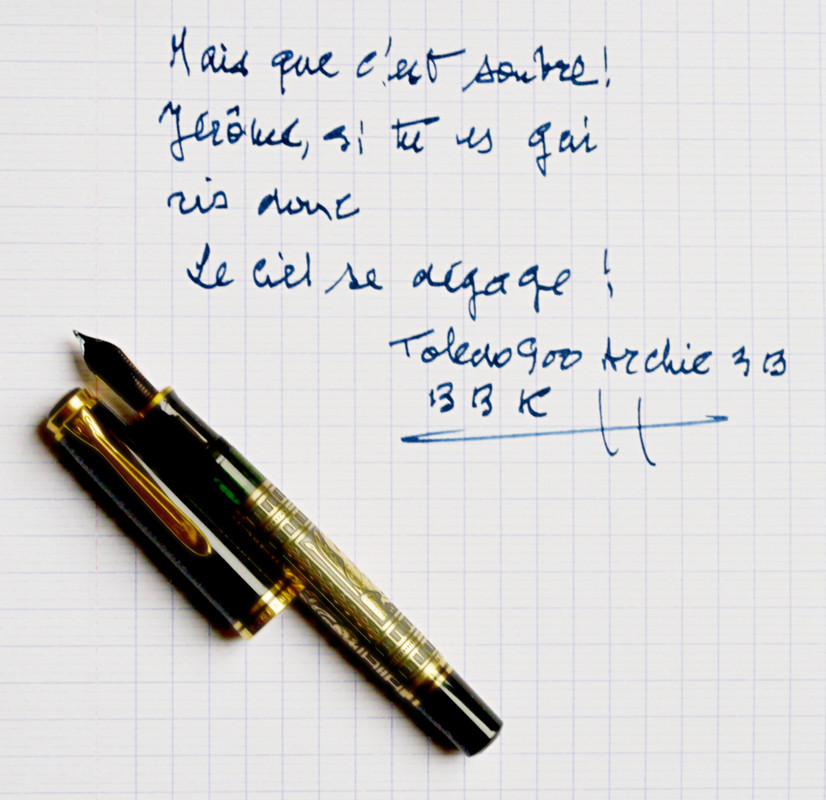 Mais que c'est sombre!
Jérôme, si tu es gai
ris donc
Le ciel se dégage !
Toledo 900 Archie 3B
BBK